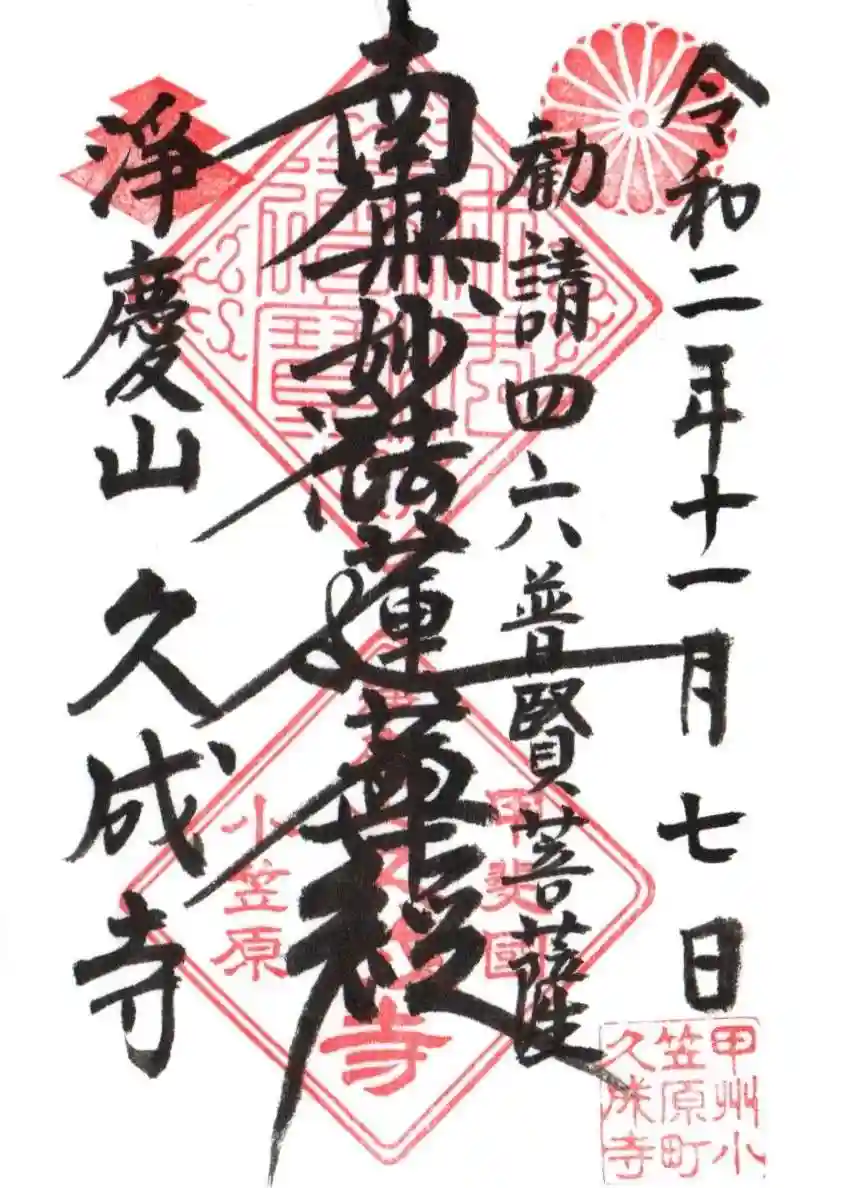 令和二年十一月七日
勧請四六普賢菩薩
南無妙法蓮華経
淨慶山 久成寺
甲斐國
小笠原
甲州小
笠原町
久成寺